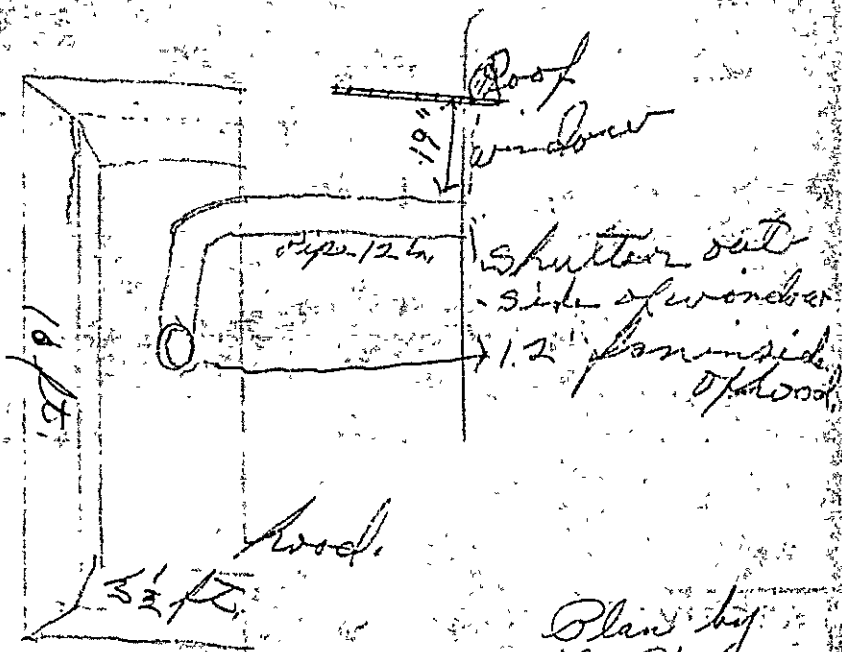 Roof
window
19"
Pipe 12 in.
Shutter out
side of window
12" fan inside
of hood
16 ft.
hood.
3½ ft.
Plan by